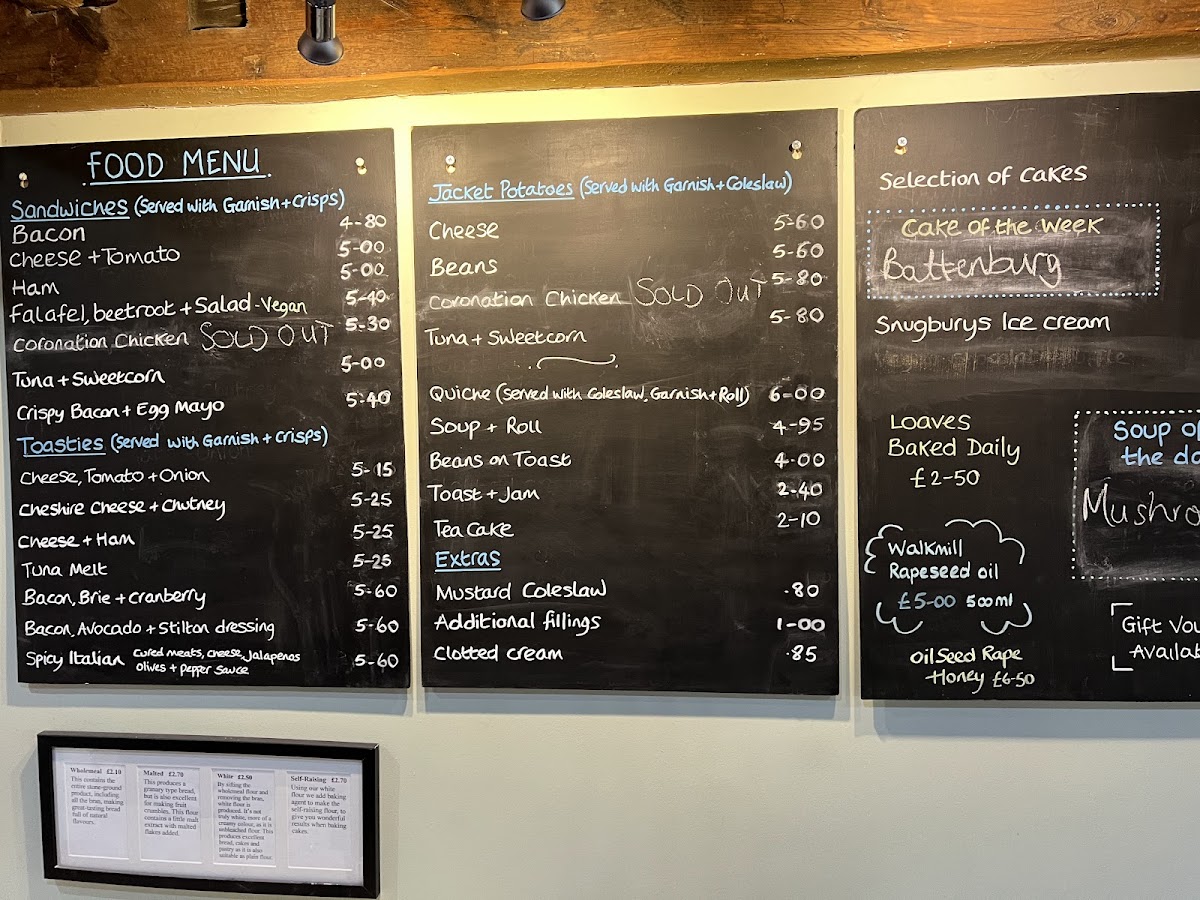 FOOD MENU
Sandwiches (Served with Garnish + Crisps)
Bacon 4-80
Cheese + Tomato 5-00
Ham 5-00
Falafel, beetroot + Salad - Vegan 5-40
Coronation Chicken SOLD OUT 5-30
Tuna + Sweetcorn 5-00
Crispy Bacon + Egg Mayo 5-40
Toasties (Served with Garnish + crisps)
Cheese, Tomato + Onion 5-15
Cheshire Cheese + Chutney 5-25
Cheese + Ham 5-25
Tuna Melt 5-25
Bacon, Brie + cranberry 5-60
Bacon, Avocado + Stilton dressing 5-60
Spicy Italian cured meats, cheese, Jalapenos 5-60
olives + pepper sauce
Jacket Potatoes (Served with Garnish + Coleslaw)
Cheese 5-60
Beans 5-60
Coronation Chicken SOLD OUT 5-80
Tuna + Sweetcorn 5-80
Quiche (Served with Coleslaw, Garnish + Roll) 6-00
Soup + Roll 4-95
Beans on Toast 4-00
Toast + Jam 2-40
Tea Cake 2-10
Extras
Mustard Coleslaw .80
Additional fillings 1-00
Clotted cream .85
Selection of Cakes
Cake of the Week
Battenburg
Snugburys Ice cream
Loaves
Baked Daily
£2-50
Soup of
the da
Mushro
Walkmill
Rapeseed oil
£5-00 500ml
OilSeed Rape
Honey £6-50
Gift Vou
Availab
Wholemeal £2.10
This contains the
entire stone-ground
product, including
all the bran, making
great-tasting bread
full of natural
flavours.
Malted £2.70
This produces a
granary type bread,
but is also excellent
for making fruit
crumbles. This flour
contains a little malt
extract with malted
flakes added.
White £2.50
By sifting the
wholemeal flour and
removing the bran,
white flour is
produced. It's not
truly white, more of a
creamy colour, as it is
unbleached flour. This
produces excellent
bread, cakes and
pastry as it is also
suitable as plain flour.
Self-Raising £2.70
Using our white
flour we add baking
agent to make the
self-raising flour, to
give you wonderful
results when baking
cakes.